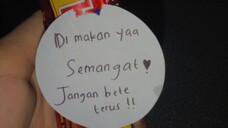 Di makan yaa
Semangat ♥
Jangan bete
terus !!